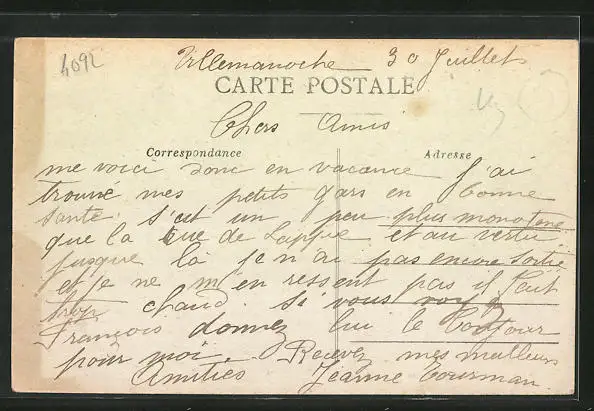 4092
Villemanoche 30 Juillet
CARTE POSTALE
Chers Amis
Correspondance
Adresse
me voici donc en vacance J'ai
trouvé mes petits gars en bonne
santé. s'est un peu plus monotone
que la rue de Lappe et au vertu
jusque là je n'ai pas encore sortie
et je ne m'en ressent pas il fait
trop chaud. Si vous voyez
François donnez lui le bonjour
pour moi. Recevez mes meilleurs
Amitiés Jeanne Tourman.